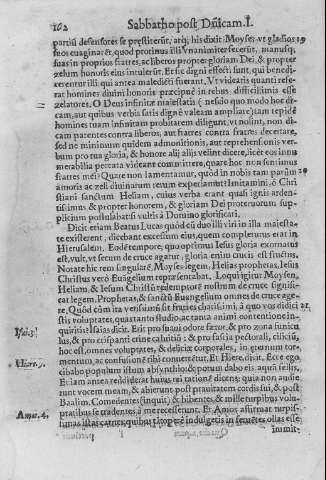 162 Sabbatho post Dñicam. I.
partiũ defensores se præstiterũt, atq; his dixit Moyses, vt gladios
suos euaginarẽt, quod protinus illi vnanimiter fecerũt, manusq;
suas in proprios fratres, ac liberos propter gloriam Dei, & propter
zelum honoris eius intulerũt. Et sic digni effecti sunt, qui benedi-
cerentur illi qui antea maledicti fuerant. Vt videatis quanti refe-
rat homines diuini honoris præcipuè in rebus difficillimis esse
zelatores. O Deus infinitæ maiestatis (nescio quo modo hoc di-
cam, aut quibus verbis satis dignè valeam ampliare) tam tepidè
homines tuam infinitam probitatem diligunt, vt nolint, non di-
cam parentes contra liberos, aut fratres contra fratres decertare,
sed ne minimum quidem admonitionis, aut reprehensionis ver-
bum pro tua gloria, & honore alij alijs velint dicere, licèt eos innu-
merabilia peccata videant committere, quare hoc non sentimus
fratres mei? Quare non lamentamur, quòd in nobis tam parùm
amoris ac zeli diuinarum rerum experiamur? Imitamini, ô Chri
stiani sanctum Heliam, cuius verba erant quasi ignis arden-
tissimus, & propter honorem, & gloriam Dei proteruorum sup-
plicium postulabat si vultis à Domino glorificari.
Dicit etiam Beatus Lucas quòd cũ duo illi viri in illa maiesta-
te existerent, dicebant excessum eius, quem completurus erat in
Hierusalem. Eodẽ tempore, quo optimus Iesus gloria exornatus
est, vult, vt serum de cruce agatur, gloria enim crucis est fructus.
Notate hîc rem singularẽ, Moyses legem, Helias prophetas, Iesus
Christus verò Euãgelium repræsentabat. Loqui igitur Moysen,
Heliam, & Iesum Christũ redemptorẽ nostrum de cruce signifi-
cat legem, Prophetas, & sanctũ Euangelium omnes de cruce age-
re. Quòd cùm ita verissimè sit fratres clarissimi, à quo vos didici
stis voluptates, quas tanto studio, ac tanta animi contentione in-
Isai. 3. quiritis? Isaias dicit. Erit pro suaui odore fœtor, & pro zona funicu
lus, & pro crispanti crine caluitiũ: & pro fascia pectorali, cilicjũ,
hoc est, omnes voluptates, & deliciæ corporales, in grauem tor-
Hiere. 9. mentum, ac confusionẽ tibi conuertẽtur. Et Hiere. dicit. Ecce ego
cibabo populum istum absynthio, & potum dabo eis aquã fellis,
Et iam antea reddiderat huius rei rationẽ dicens: quia non audie
runt vocem meam, & abierunt post prauitatem cordis sui, & post
Baalim. Comedentes (inquit) & bibentes, & mille turpibus volu-
ptatibus se tradentes, à me recesserunt. Et Amos affirmat turpis-
Amos. 4. simas istas carnes, quibus tãtopere indulgetis in feruẽtes ollas esse
immit-